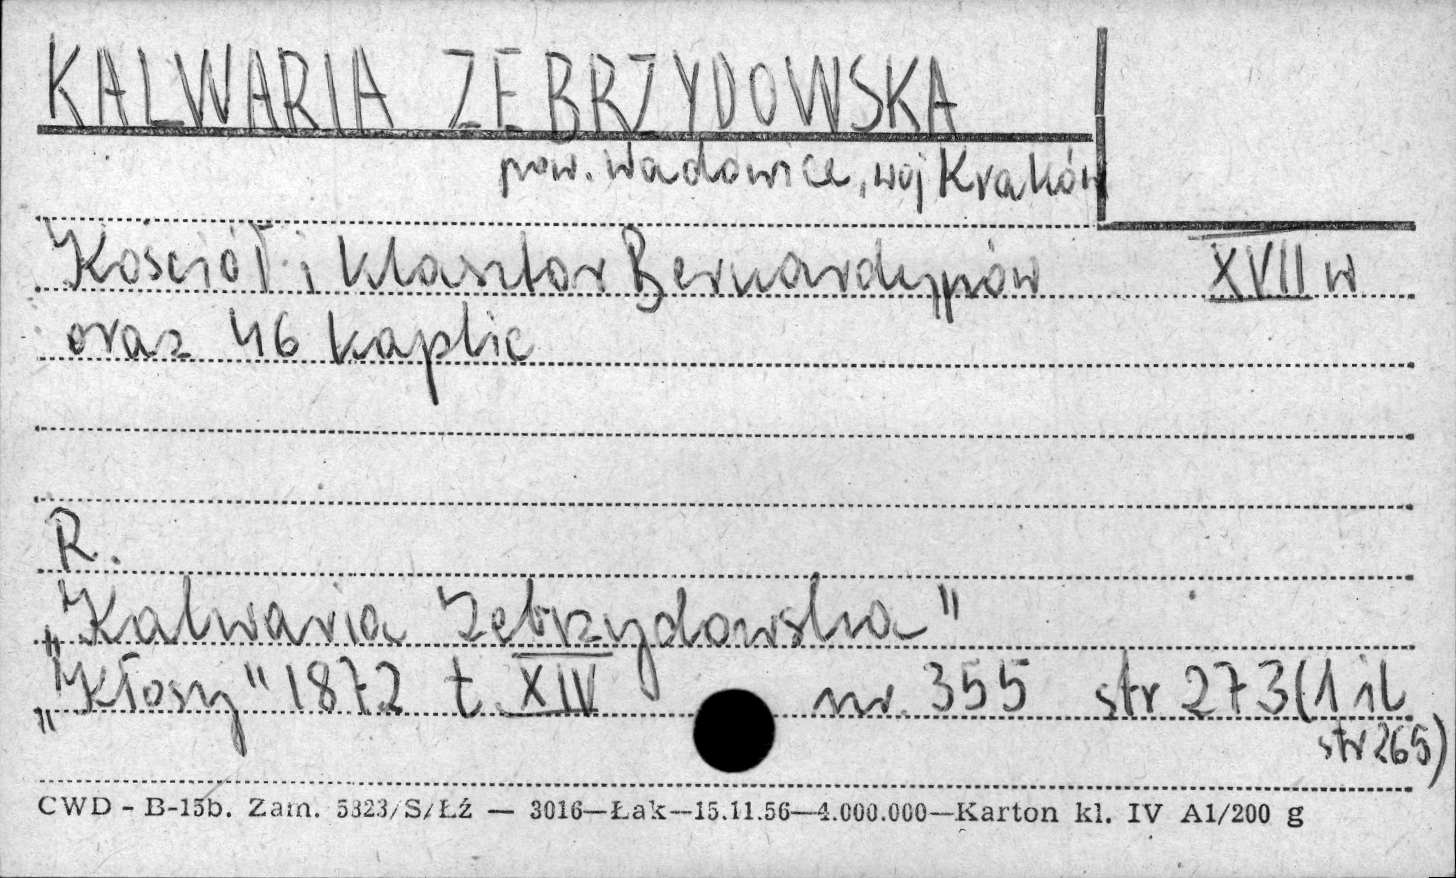 KALWARIA ZEBRZYDOWSKA
pow. Wadowice, woj Kraków
Kościół i klasztor Bernardynów XVII w
oraz 46 kaplic
R.
„Kalwaria Zebrzydowska"
„Kłosy" 1872 t. XIV nr. 355 str 273 (1 il
str 265)
CWD - B-15b. Zam. 5323/S/Łź — 3016—Łak—15.11.56—4.000.000—Karton kl. IV A1/200 g